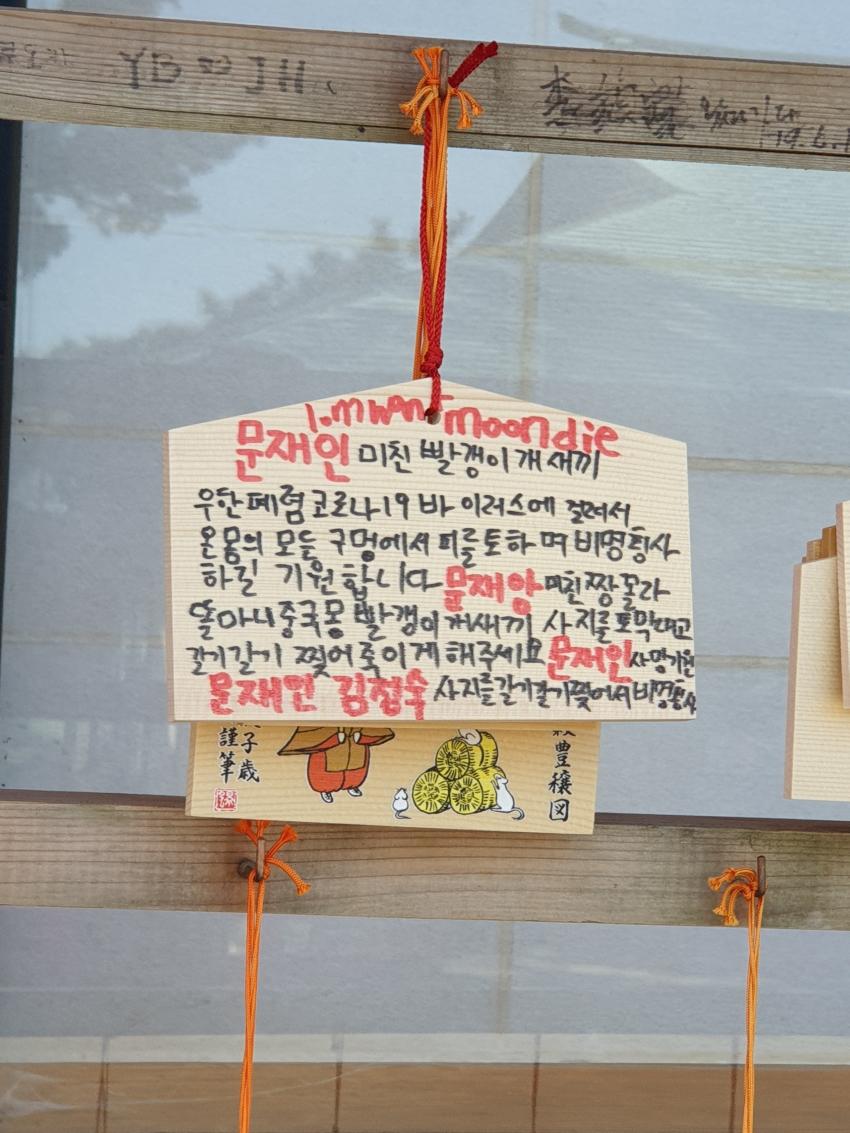 YB JH
19.6.1
I.m WANT moon die
문재인 미친 빨갱이 개새끼
우한 폐렴 코로나19 바이러스에 걸려서
온몸의 모든 구멍에서 피를 토하며 비명횡사
하길 기원합니다 문재앙 미친 짱골라
똘마니 중국몽 빨갱이 개새끼 사지를 토막내고
갈기갈기 찢어 죽이게 해주세요 문재인 사망기원
문재인 김정숙 사지를 갈기갈기 찢어서 비명횡사
子歳
謹筆
豊穣図